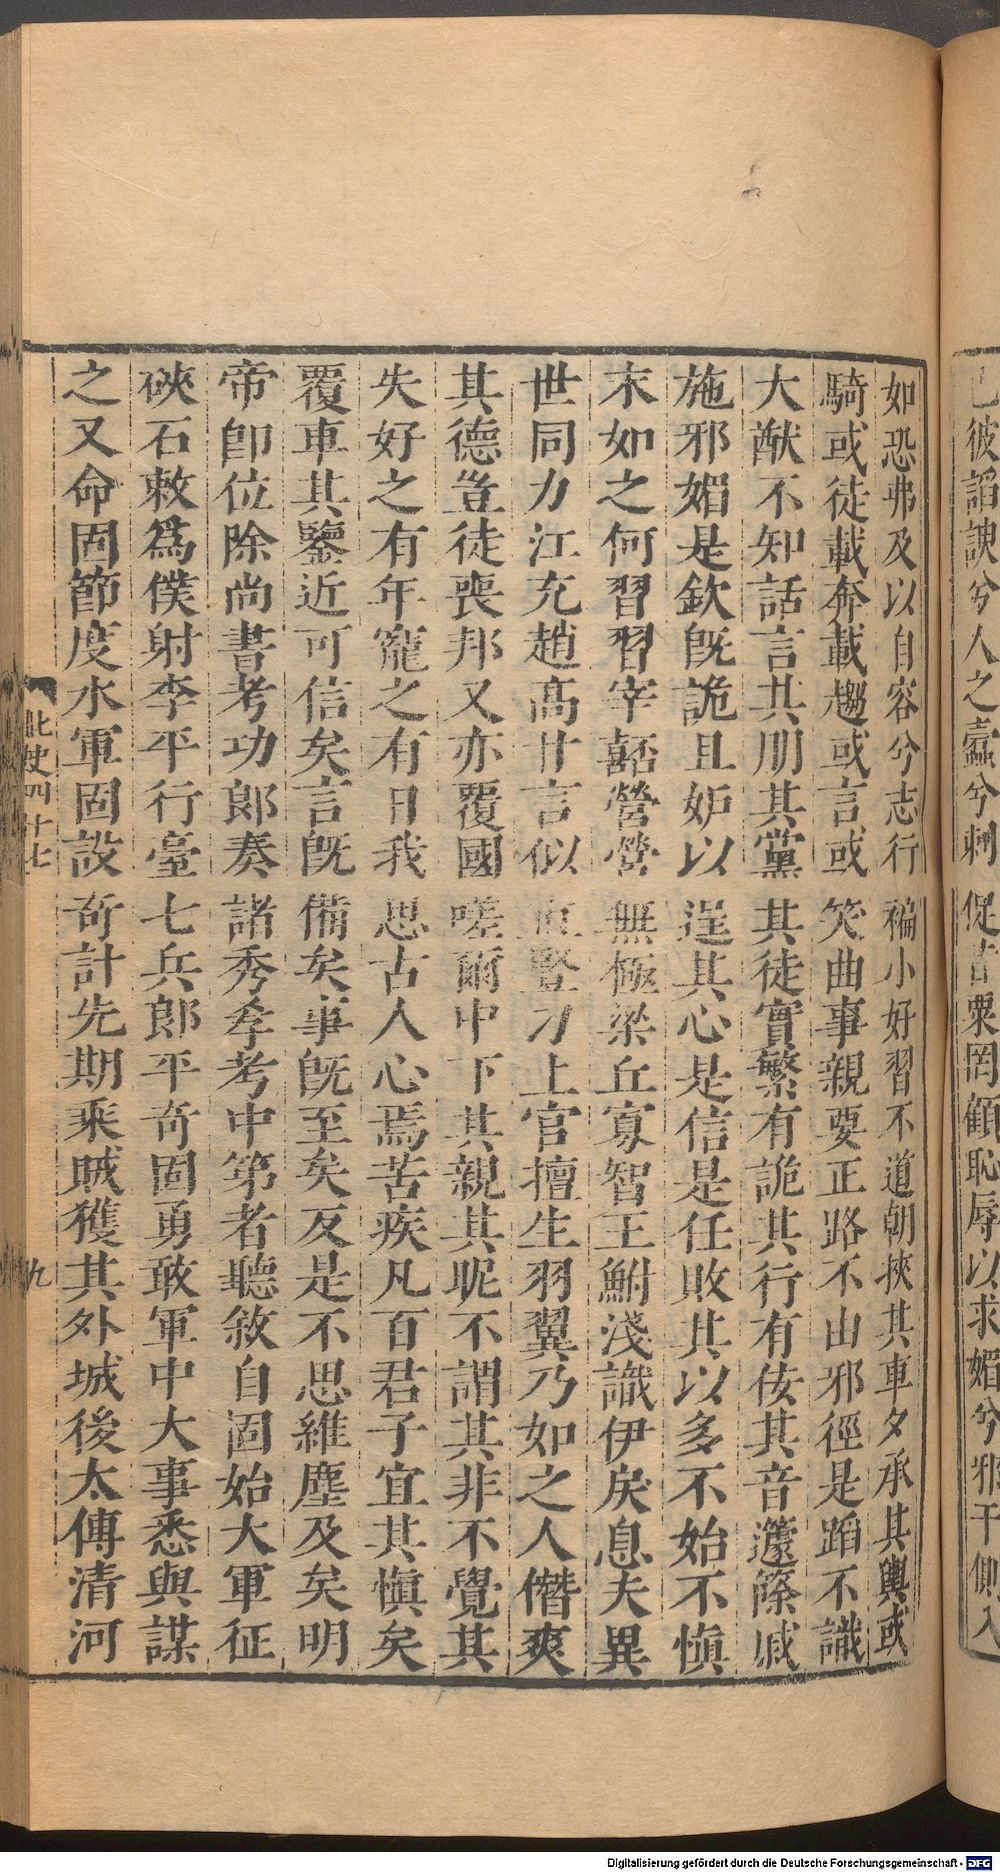 已彼諂諛兮人之蠹兮刺促昔粟罔顧恥辱以求媚兮邪干側入
如恐弗及以自容兮志行褊小好習不道朝挾其車夕承其輿或
騎或徒載奔載趨或言或笑曲事親要正路不由邪徑是蹈不識
大猷不知話言其朋其黨其徒實繁有詭其行有佞其音籧篨戚
施邪媚是欽旣詭且妒以逞其心是信是任敗其以多不始不慎
末如之何習習宰嚭營營無極梁丘寡智王鮒淺識伊戾息夫異
世同力江充趙高甘言似直豎刁上官擅生羽翼乃如之人僭爽
其德豈徒喪邦又亦覆國嗟爾中下其親其昵不謂其非不覺其
失好之有年寵之有日我思古人心焉苦疾凡百君子宜其慎矣
覆車其鑒近可信矣言旣備矣事旣至矣反是不思維塵及矣明
帝卽位除尚書考功郎奏諸秀孝考中第者聽敘自固始大軍征
硤石敕爲僕射李平行臺七兵郎平奇固勇敢軍中大事悉與謀
之又命固節度水軍固設奇計先期乘賊獲其外城後太傅清河
北史四十七
九
Digitalisierung gefördert durch die Deutsche Forschungsgemeinschaft - DFG